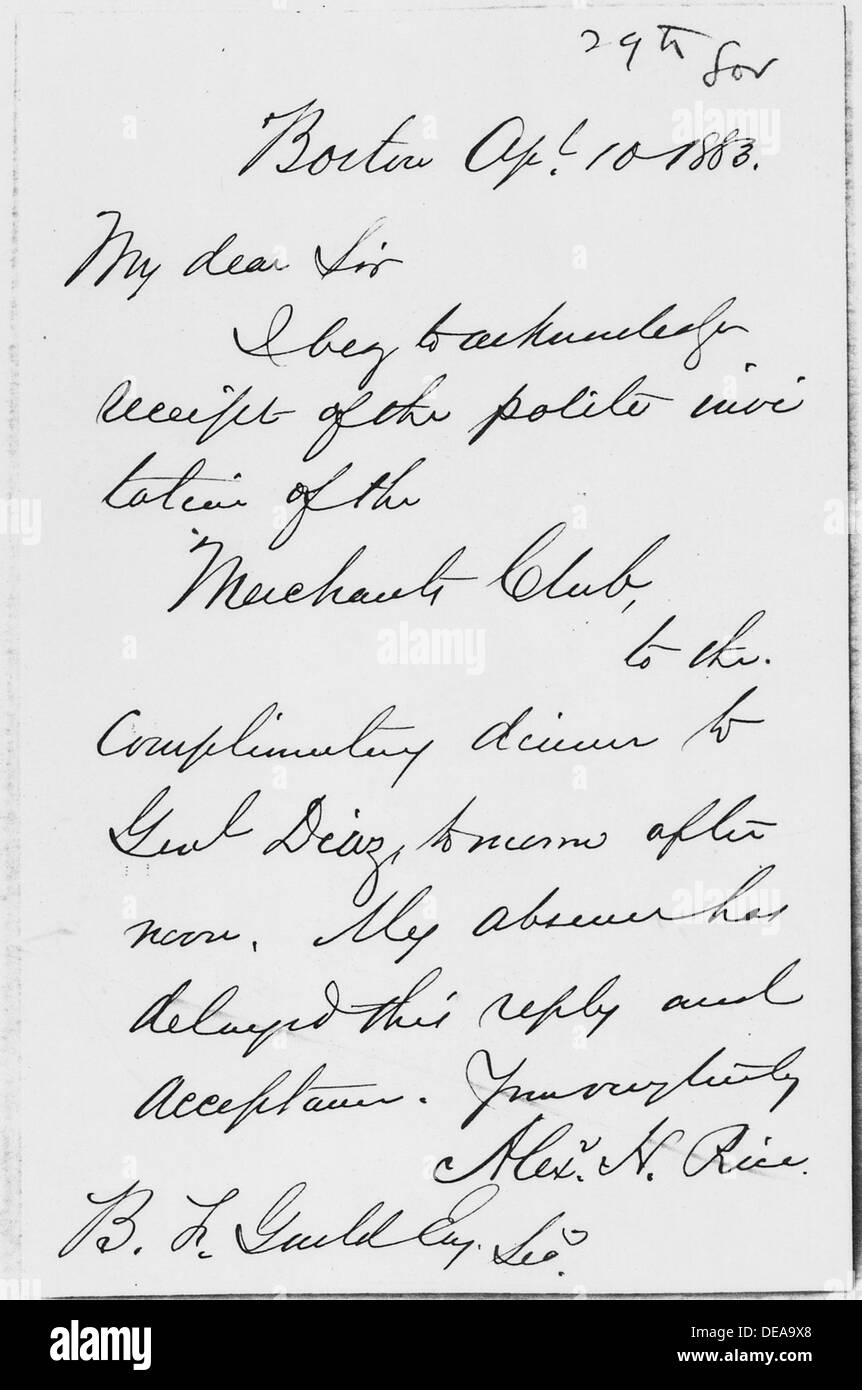 29th Gov
Boston Apl. 10 1883.
My dear Sir
I beg to acknowledge
receipt of the polite invi
tation of the
Merchants Club,
to the
Complimentary dinner to
Genl Diaz, tomorrow after
noon. My absence has
delayed this reply and
acceptance. Yours very truly
Alexr. H. Rice.
B. F. Guild Esq. Secy.
alamy
alamy stock photo
DEA9X8
www.alamy.com